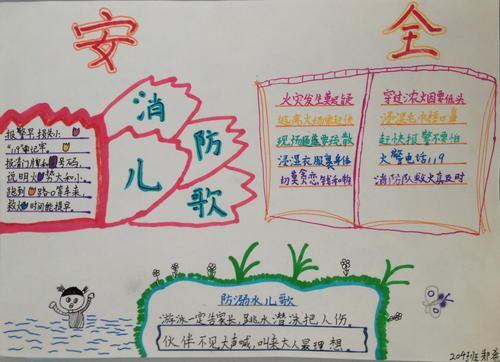 安 全
消防儿歌
报警早，损失小
"119"牢记牢。
报清门牌和号码。
说明火势大和小。
跑到路口等车来，
救火时间能提早。
火灾发生莫迟疑
逃离火场要赶快
现场
浸湿衣服裹身体
切莫贪恋钱和物
穿过浓烟要低头
浸湿毛巾捂口鼻
赶快报警不要怕
火警电话119
消防队救火真及时
防溺水儿歌
游泳一定告家长，跳水潜泳把人伤。
伙伴不见大声喊，叫来大人最理想